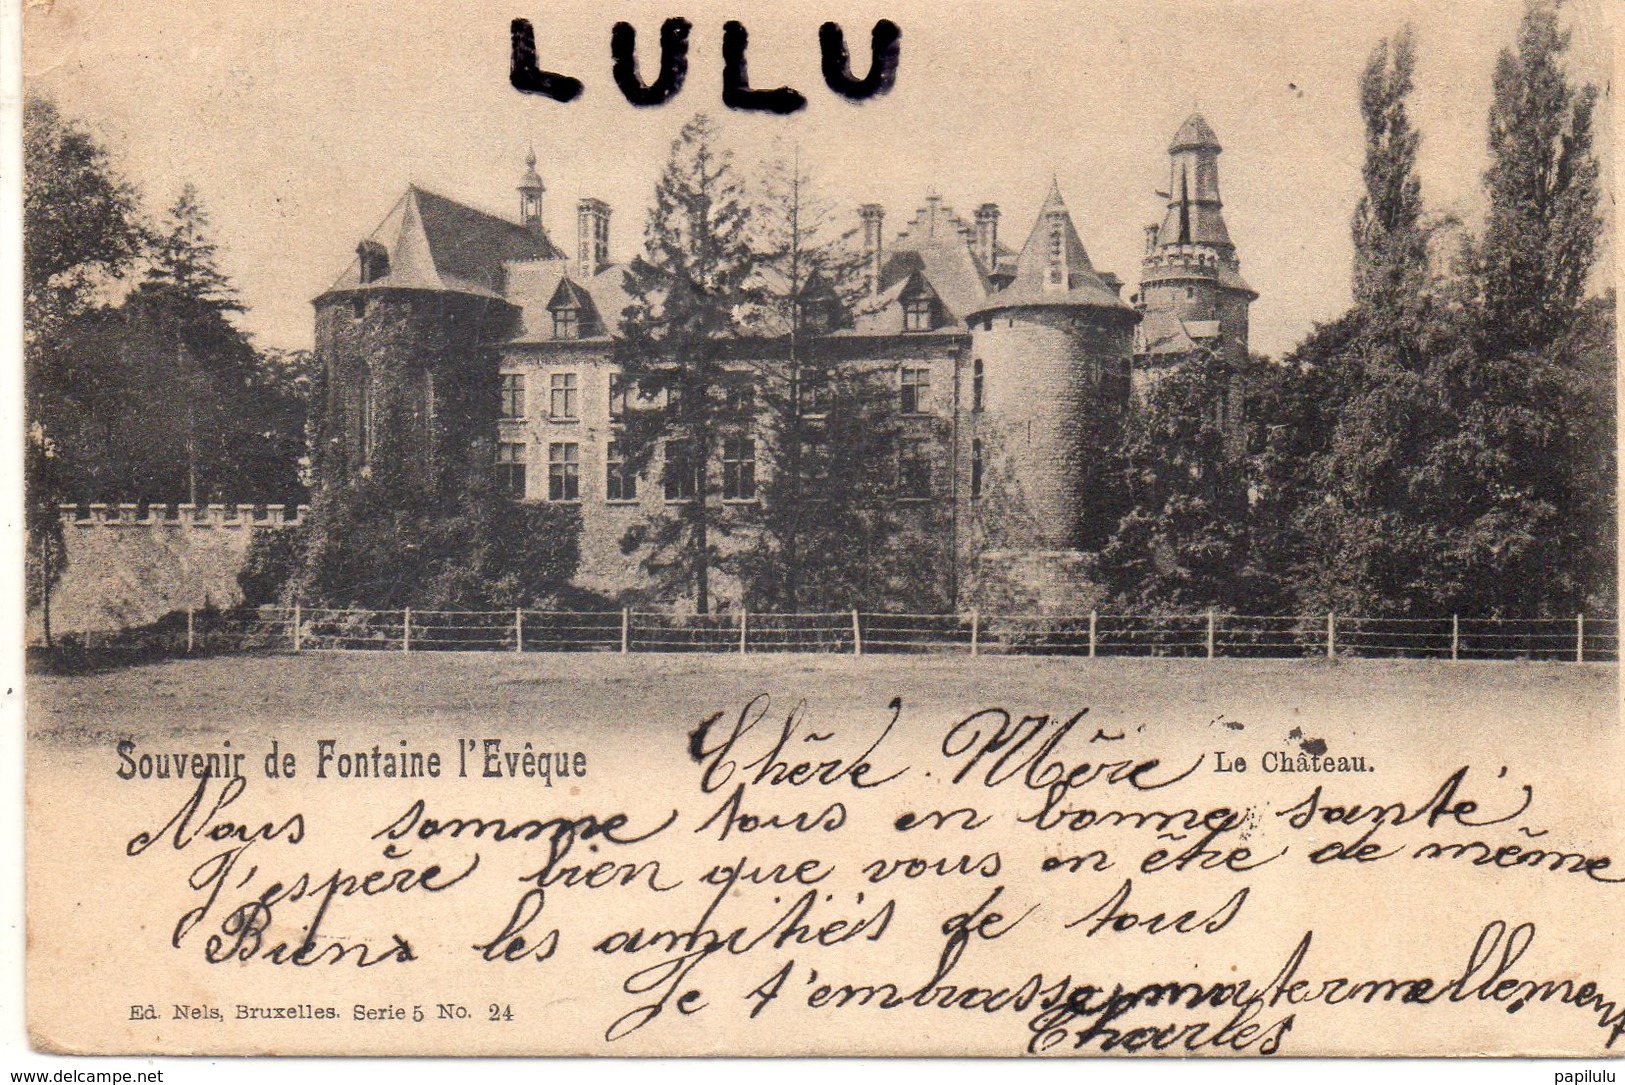 LULU
Souvenir de Fontaine l'Evêque
Chère Mère
Le Château.
Nous somme tous en bonne santé
J'espère bien que vous en être de même
Biens les amitiés de tous
Je t'embrasse maternellement
Charles
Ed. Nels, Bruxelles. Serie 5 No. 24
www.delcampe.net
papilulu